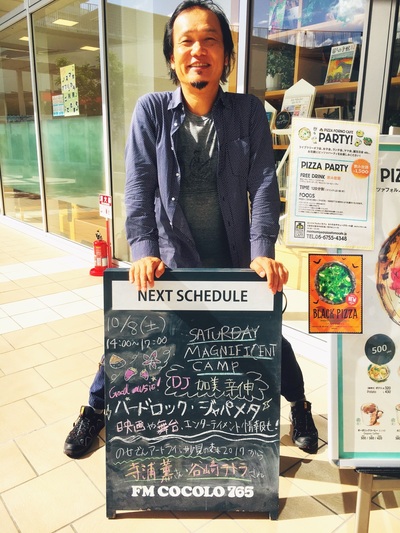 NEXT SCHEDULE
10/8(土)
14:00〜17:00
Good music!
SATURDAY
MAGNIFICENT
CAMP
DJ 加美幸伸
ハードロック・ジャパメタ
映画や舞台、エンターテイメント情報も!
のせでんアートライン 妙見の森2017から
寺浦薫さん・谷崎テトラさん
FM COCOLO 765
PIZZA FORNO CAFE
PARTY!
PIZZA PARTY
FREE DRINK
TIME
FOODS
TEL.06-6755-4348
BLACK PIZZA
PIZZ
500